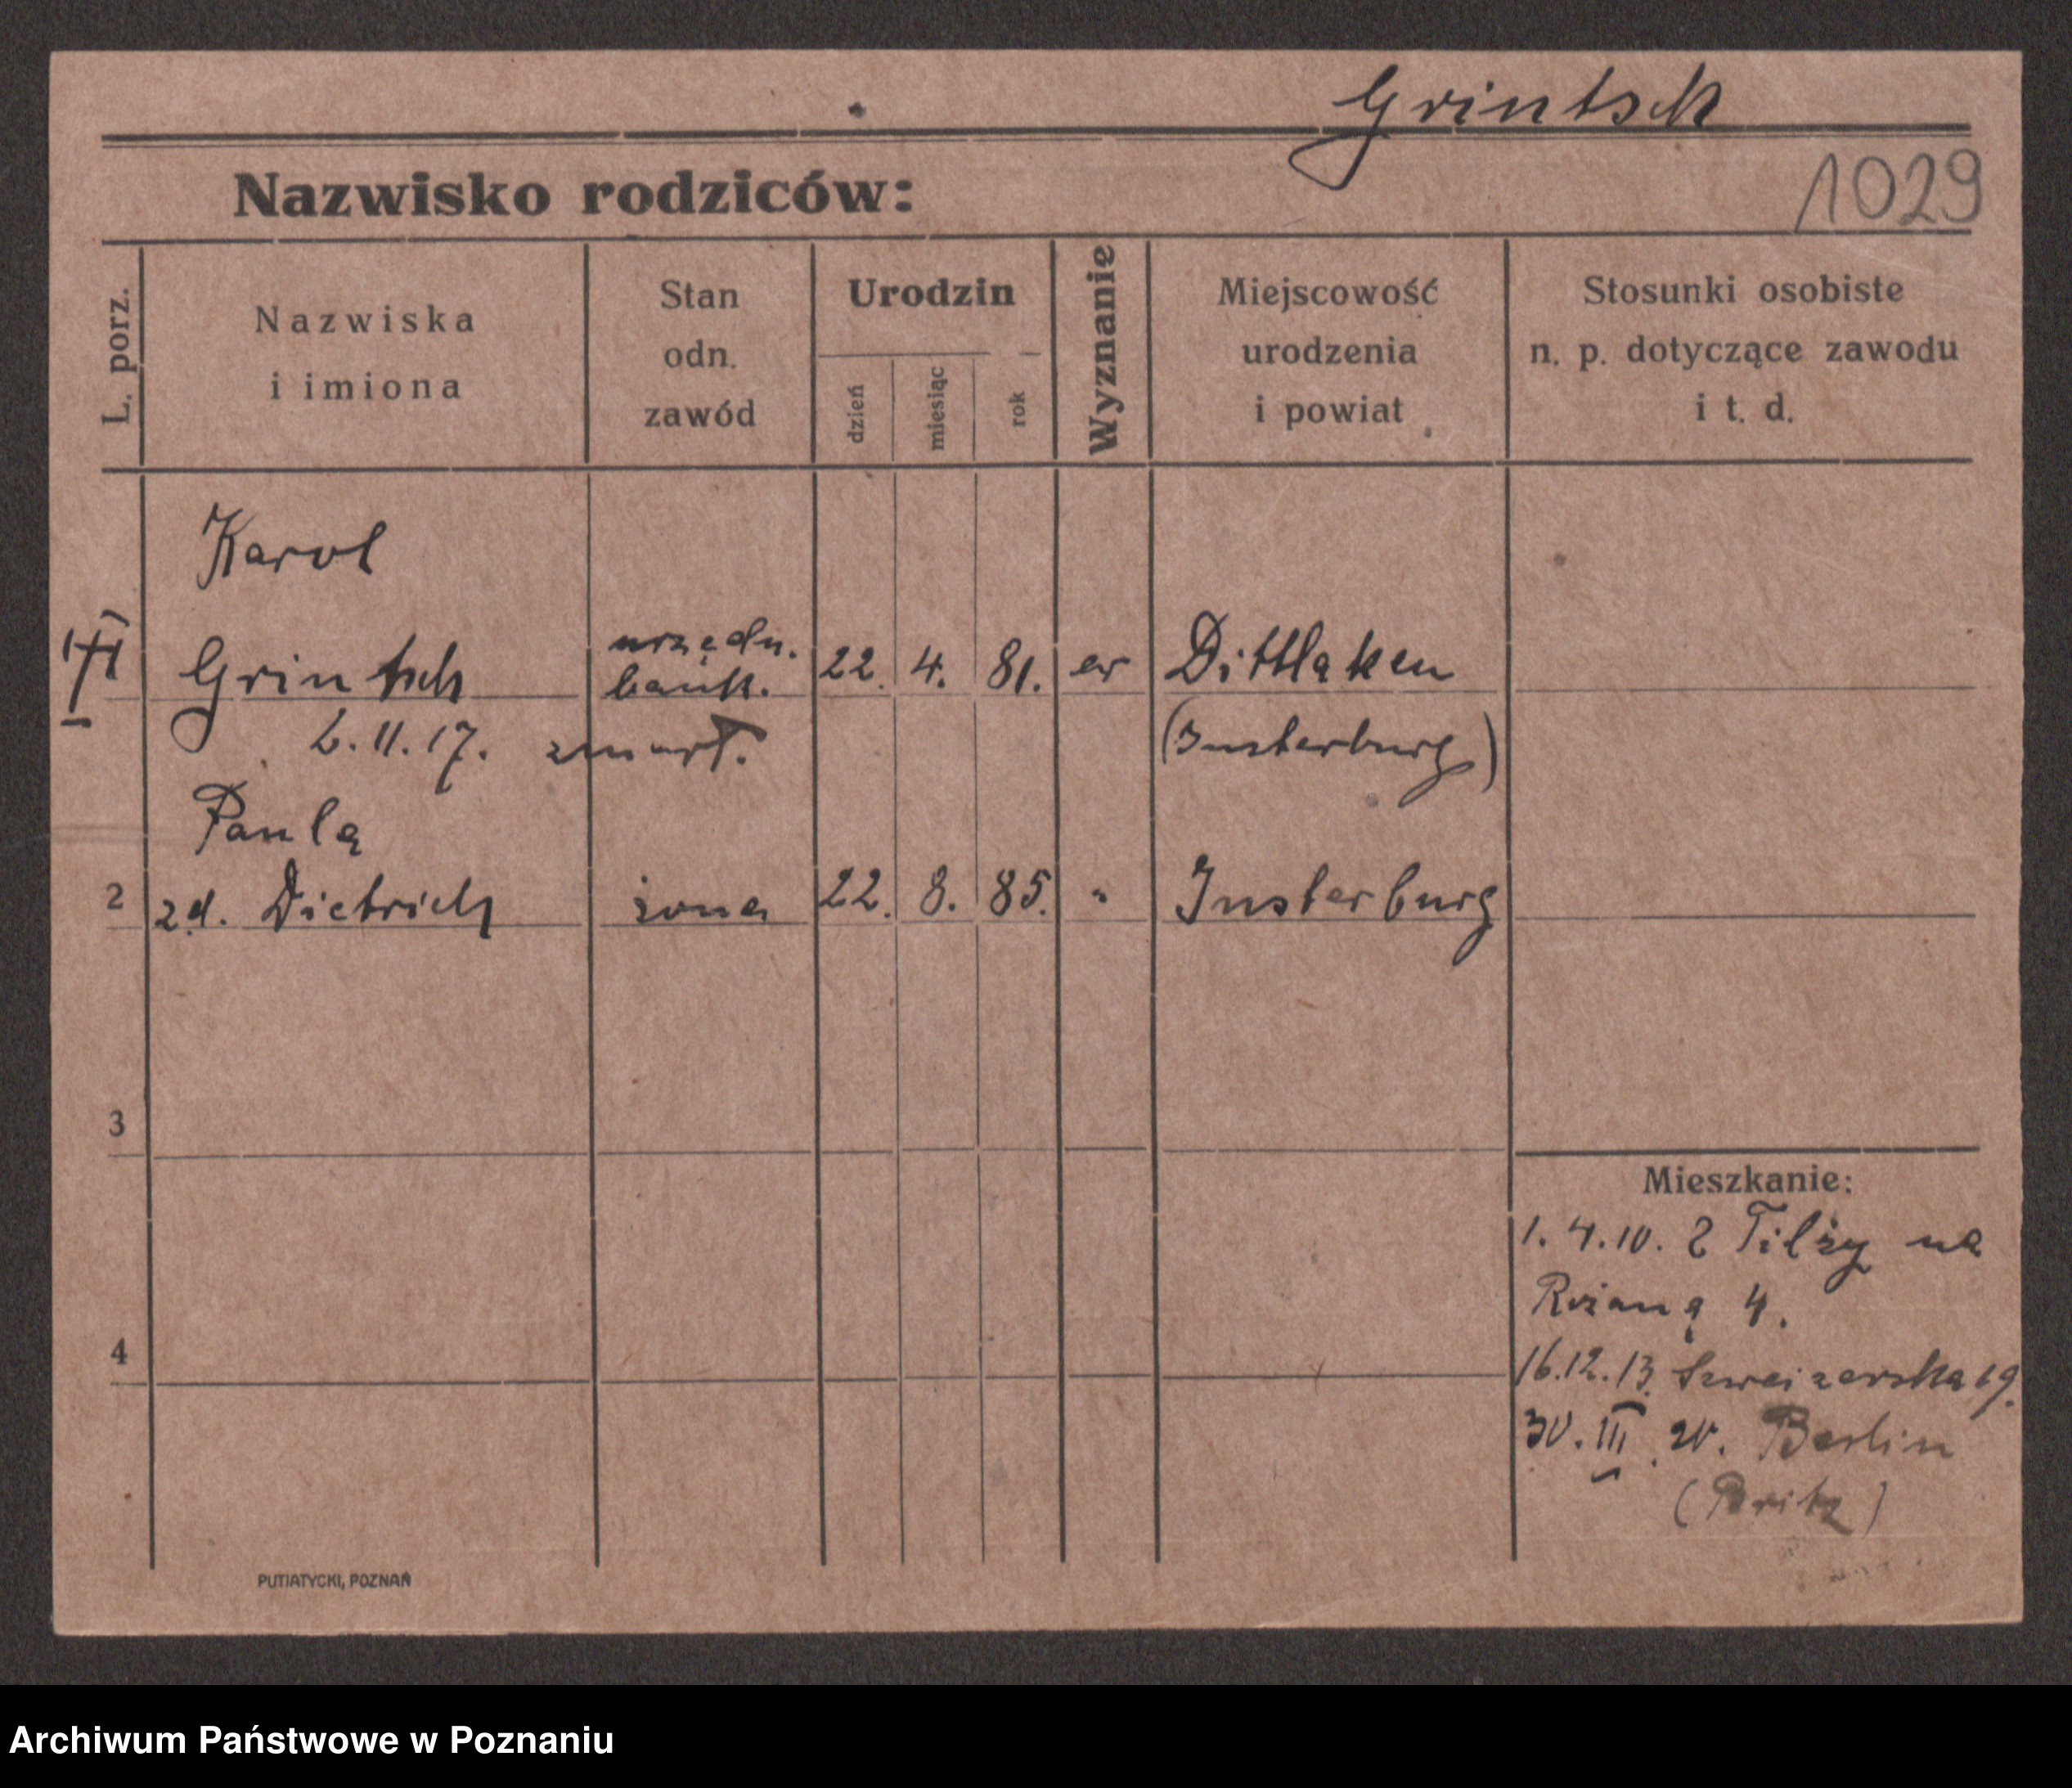 Grintsch
1029
Nazwisko rodziców:
L. porz.
Nazwiska
i imiona
Stan
odn.
zawód
Urodzin
dzień
miesiąc
rok
Wyznanie
Miejscowość
urodzenia
i powiat
Stosunki osobiste
n. p. dotyczące zawodu
i t. d.
Karol
Grintsch
urzędn.
bank.
22. 4. 81. ew Dittlaken
6.11.17. zmarł.
(Insterburg)
Paula
2 zd. Dietrich żona 22. 8. 85. " Insterburg
3
Mieszkanie:
1.4.10. z Tilży na
Różaną 4.
4
16.12.13. Szweizerska 19.
30.III.20. Berlin
(Britz)
PUTIATYCKI, POZNAŃ
Archiwum Państwowe w Poznaniu